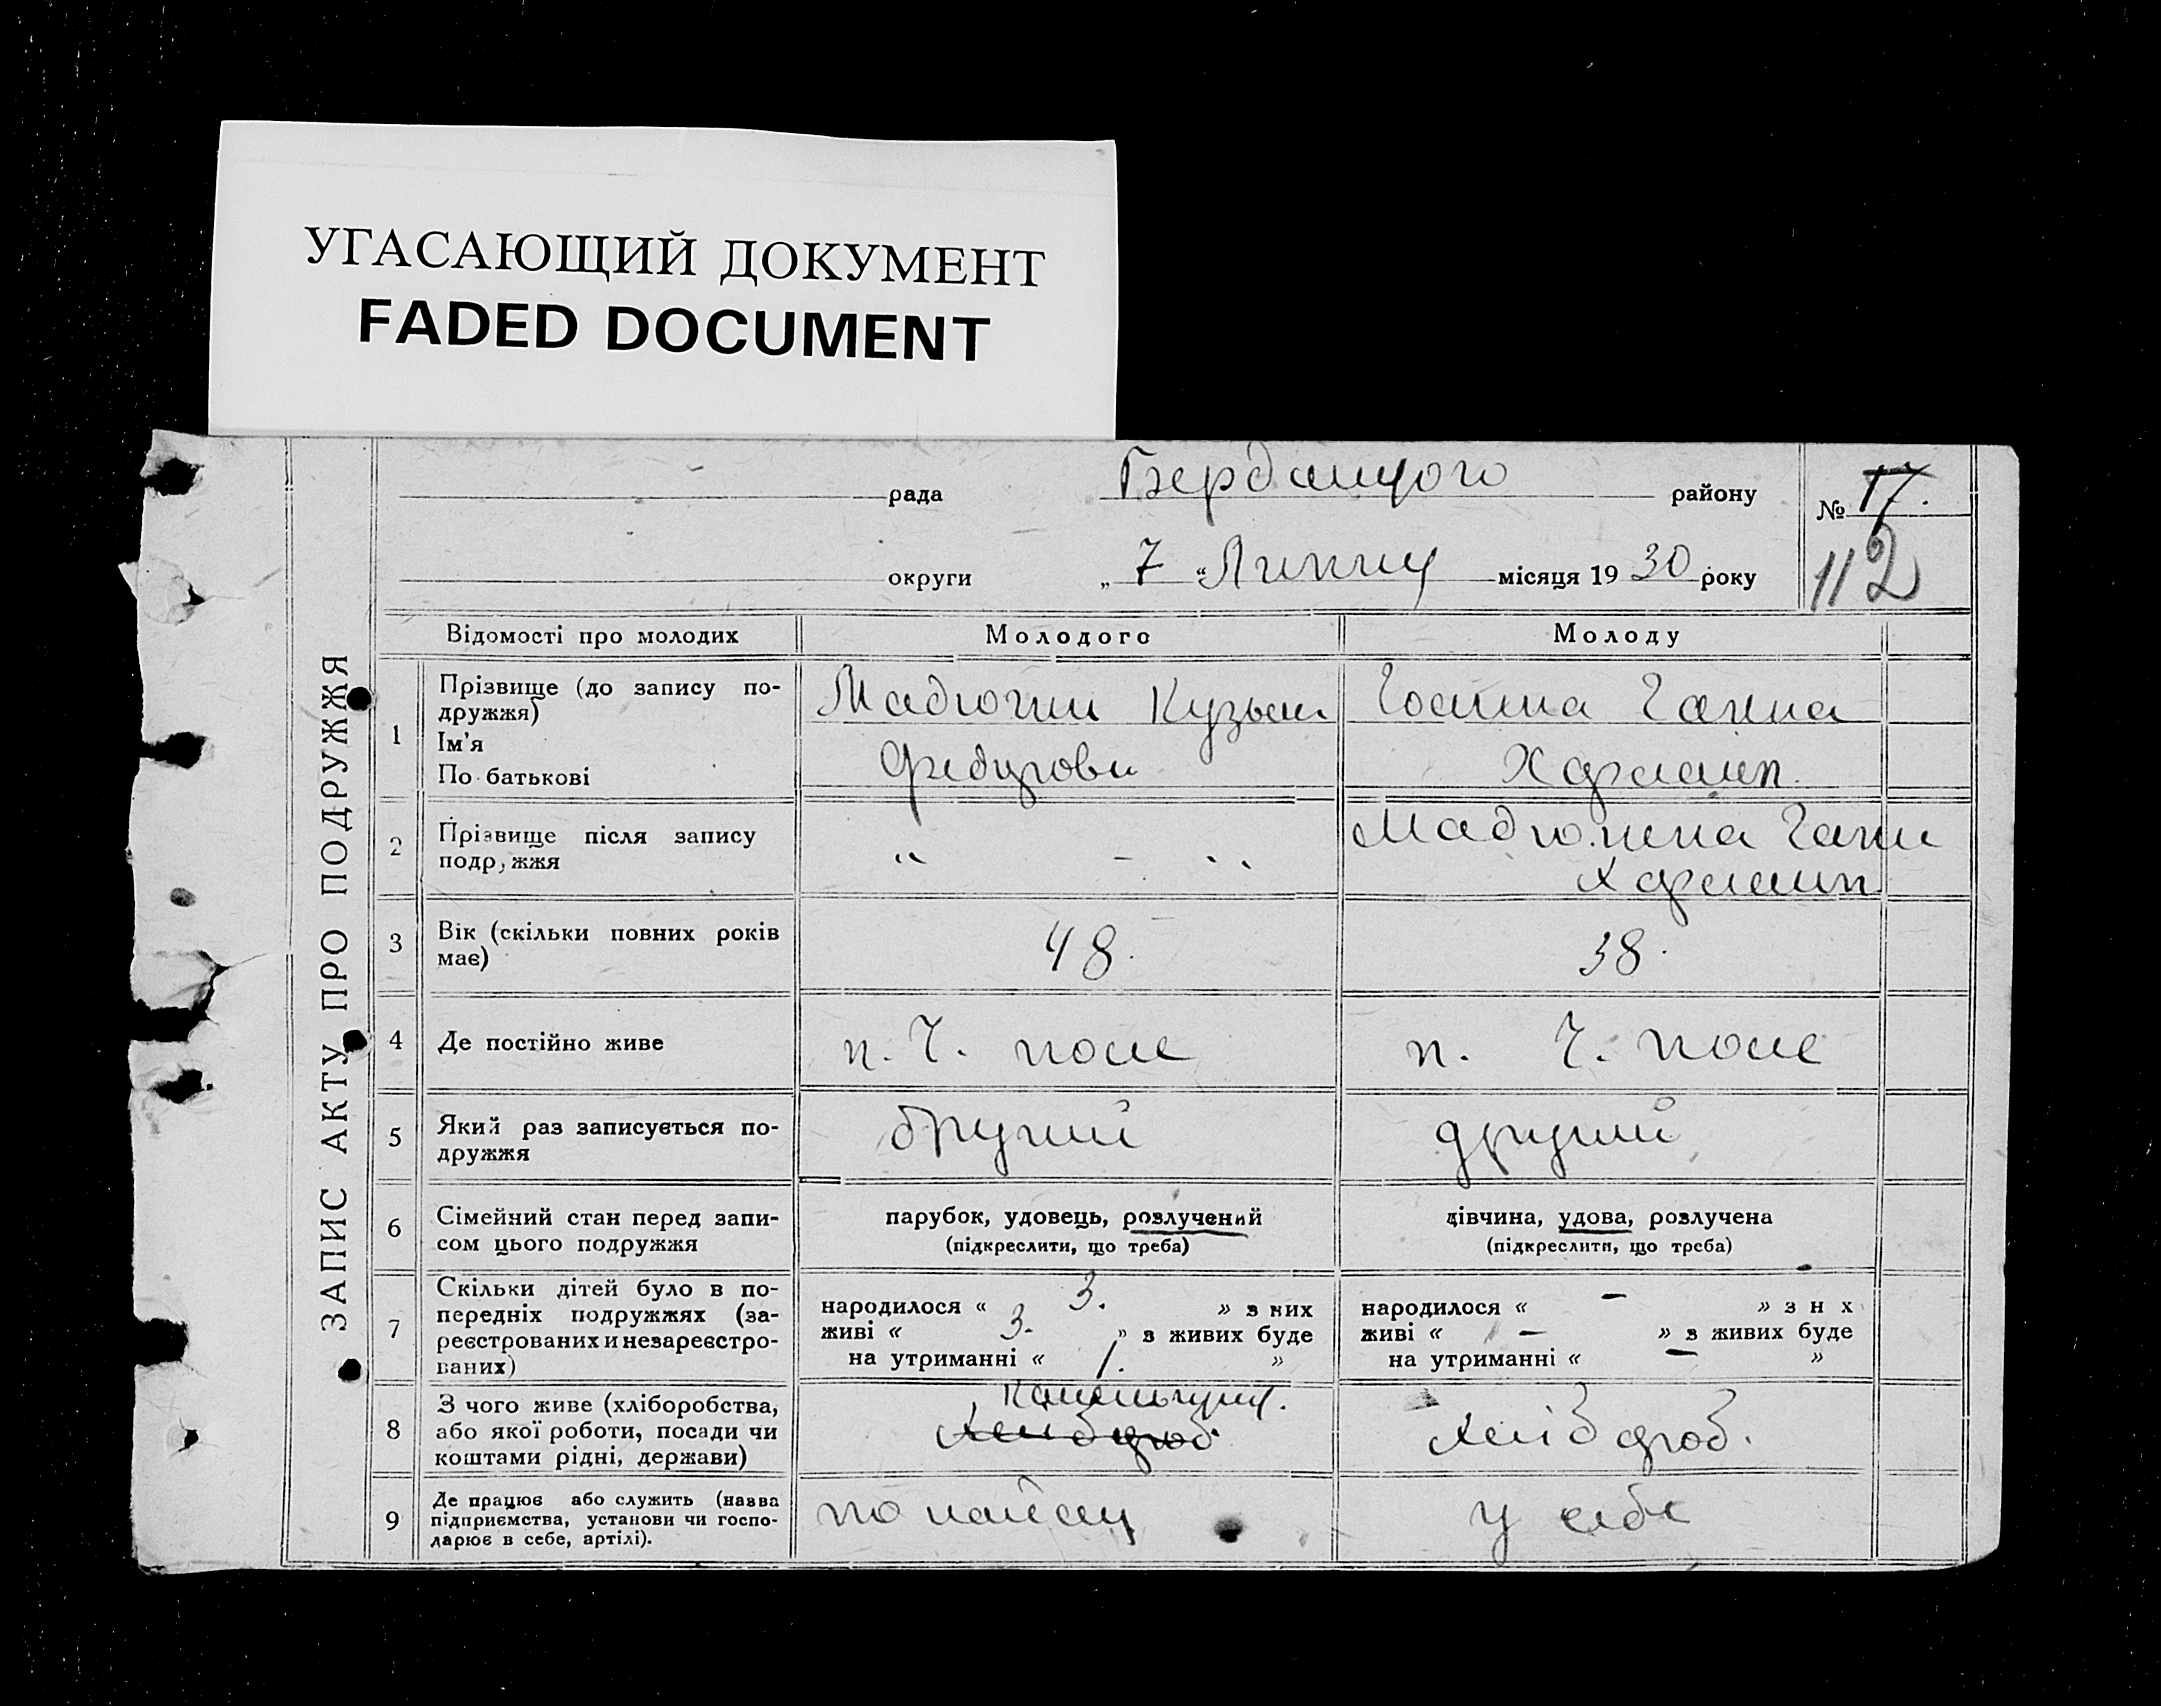 УГАСАЮЩИЙ ДОКУМЕНТ
FADED DOCUMENT
ЗАПИС АКТУ ПРО ПОДРУЖЖЯ
рада району № 17.
округи „ 7 “ Липня місяця 19 30 року 112
Відомості про молодих Молодого Молоду
1 Прізвище (до запису по-
дружжя)
Ім'я
По батькові
Кузьма
Ганна
2 Прізвище після запису
подружжя
“ - “
3 Вік (скільки повних років
має)
48. 38.
4 Де постійно живе п. Ч. поле п. Ч. поле
5 Який раз записується по-
дружжя
другий другий
6 Сімейний стан перед запи-
сом цього подружжя
парубок, удовець, розлучений
(підкреслити, що треба)
дівчина, удова, розлучена
(підкреслити, що треба)
7 Скільки дітей було в по-
передніх подружжях (за-
реєстрованих и незареєстро-
ваних)
народилося « 3. » з них
живі « 3. » з живих буде
на утриманні « 1. »
народилося « — » з н х
живі « — » з живих буде
на утриманні « — »
8 З чого живе (хліборобства,
або якої роботи, посади чи
коштами рідні, держави)
хлібороб
хлібороб.
9 Де працює або служить (назва
підприємства, установи чи госпо-
дарює в себе, артілі).
по найму у себе